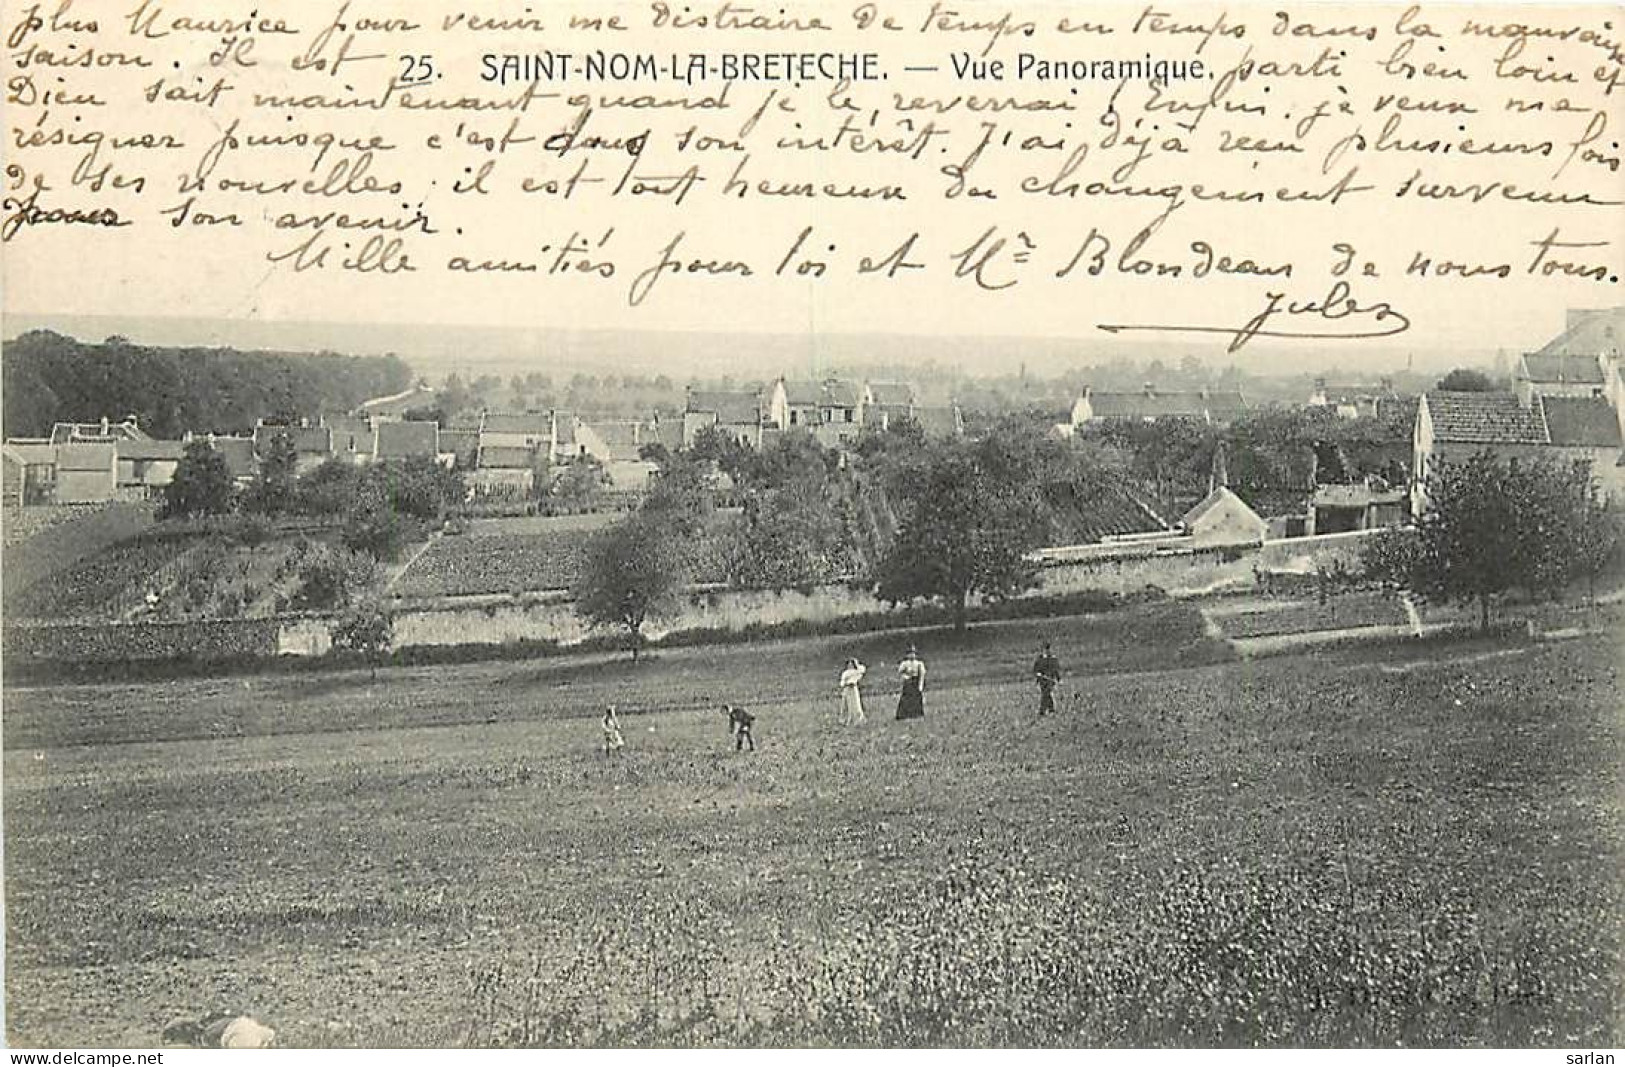 plus Maurice pour venir me distraire de temps en temps dans la mauvaise
saison. Il est parti bien loin et
25. SAINT-NOM-LA-BRETECHE. — Vue Panoramique.
Dieu sait maintenant quand je le reverrai ! Enfin, je veux me
résigner puisque c'est dans son intérêt. J'ai déjà reçu plusieurs fois
de ses nouvelles, il est tout heureux du changement survenu
pour son avenir.
Mille amitiés pour toi et Mr Blondeau de nous tous.
Jules
delcampe.net
sarlan